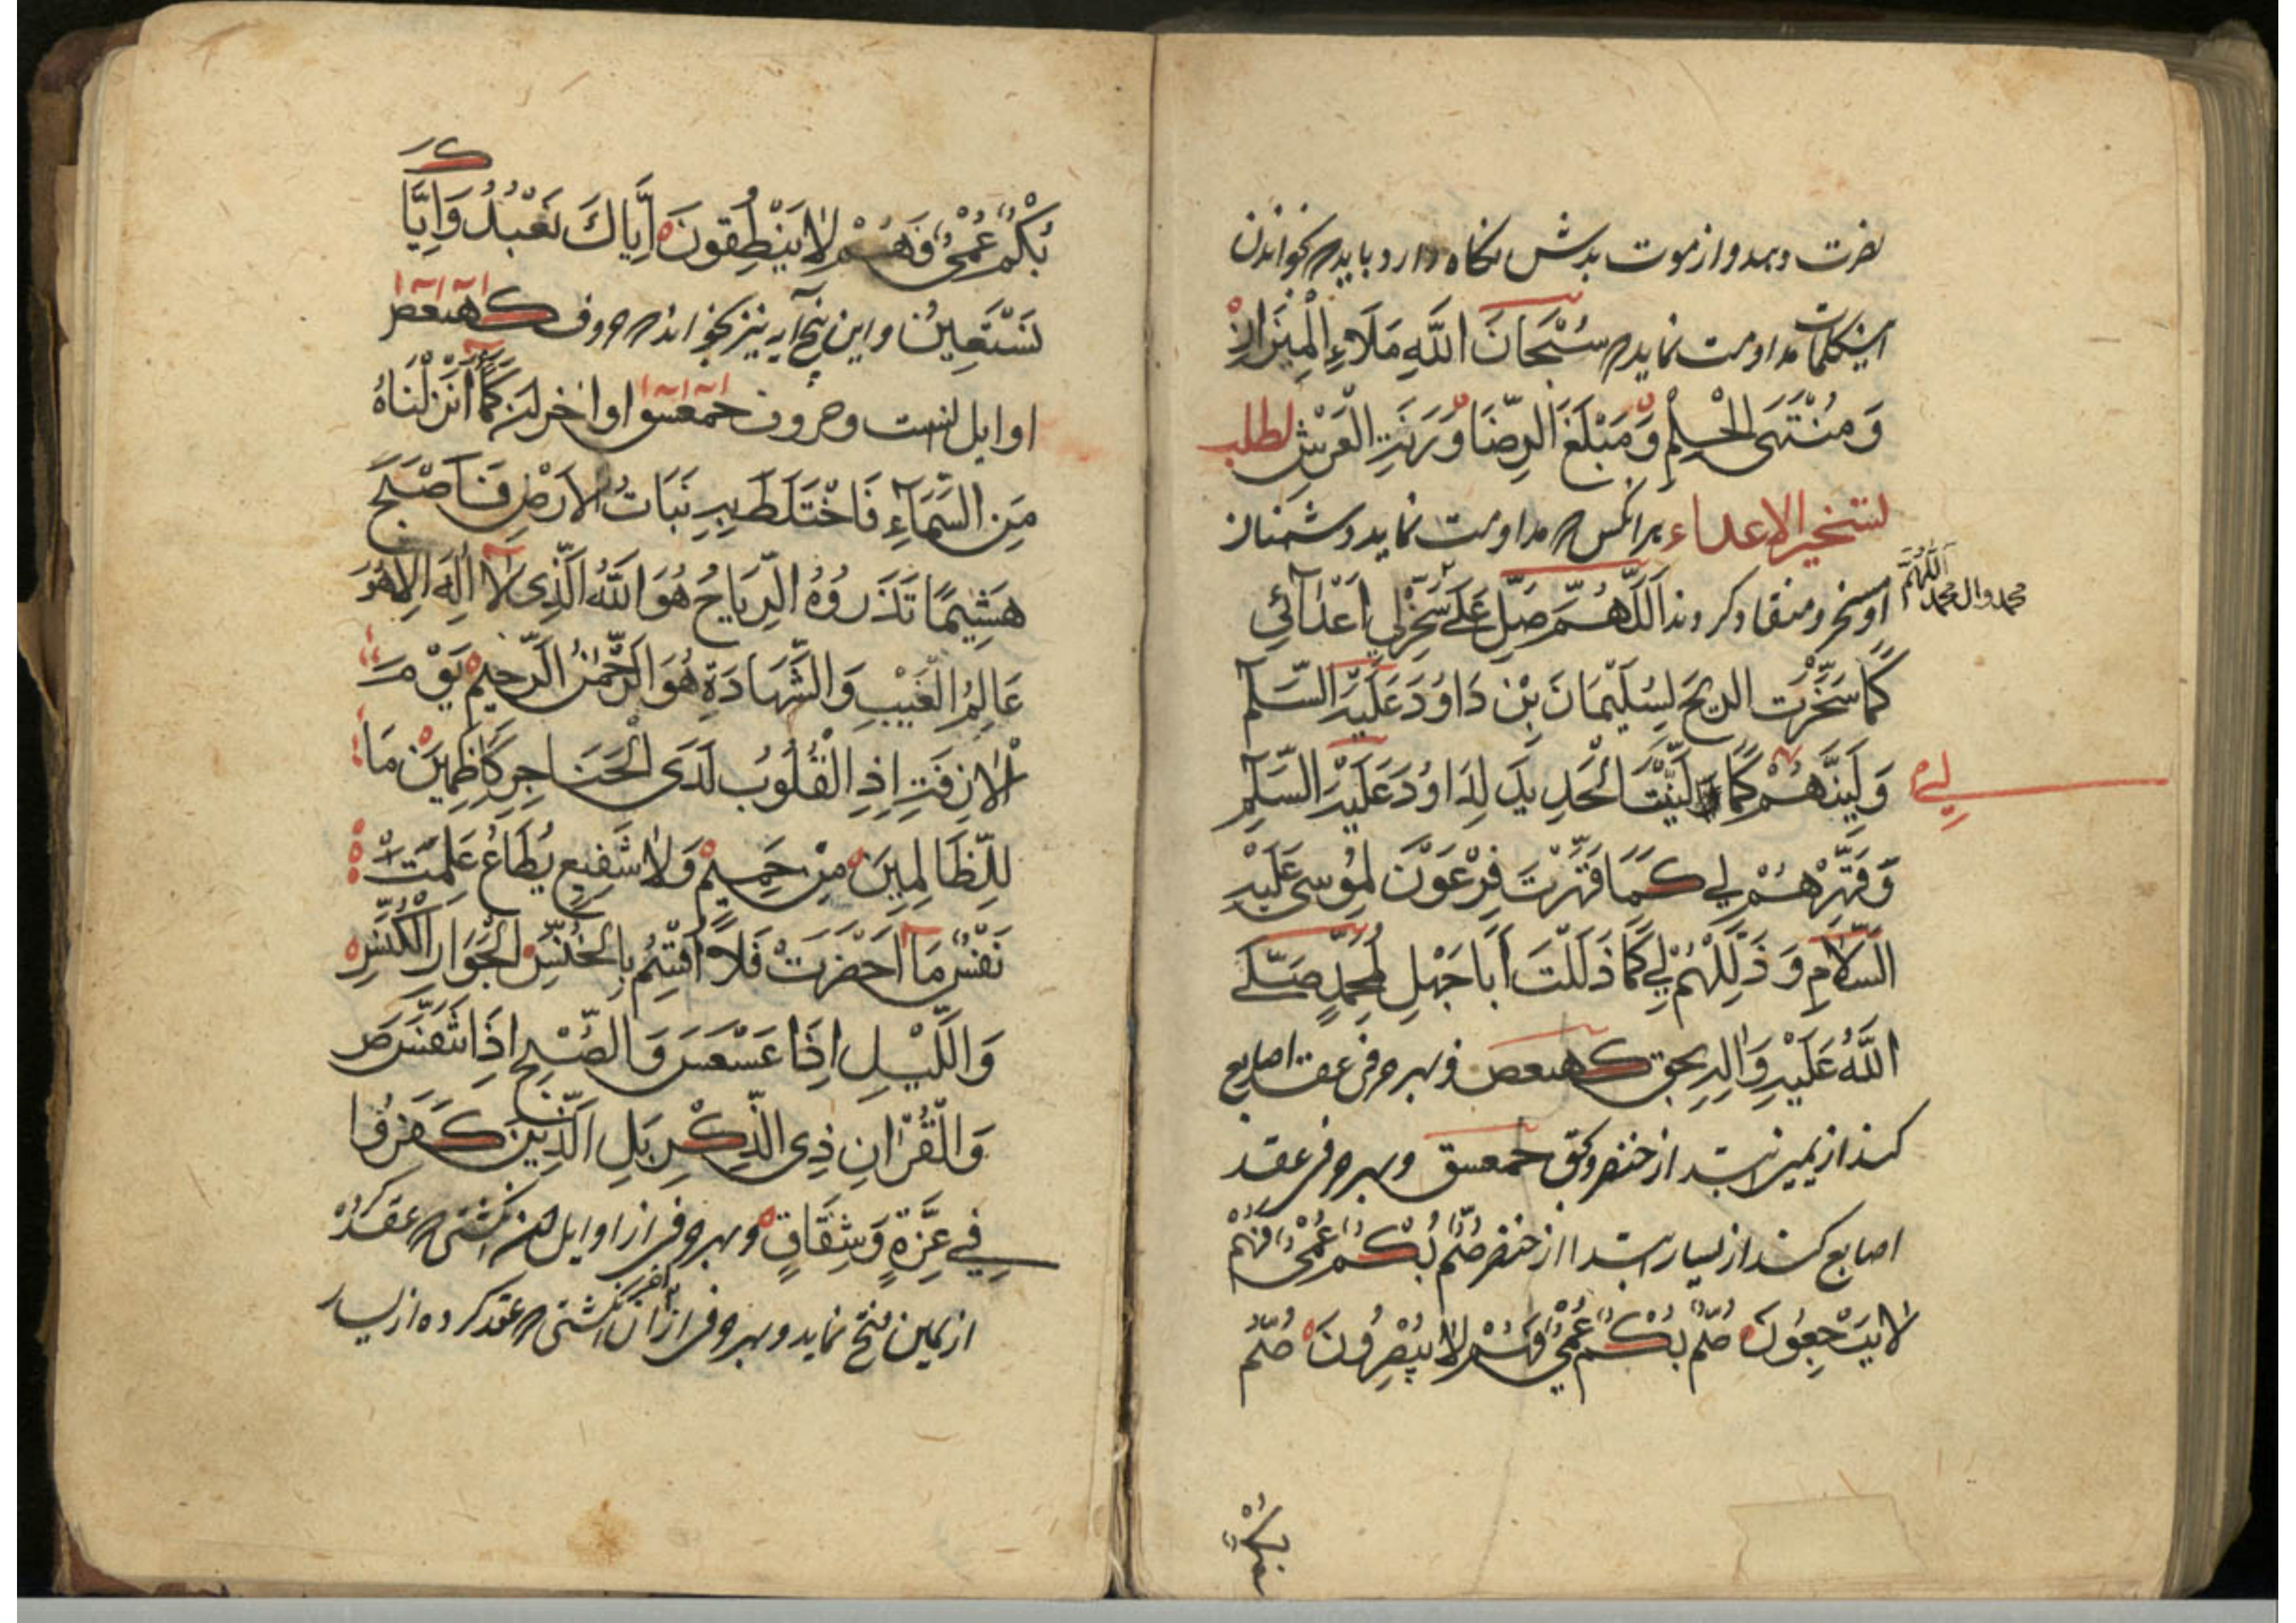 نصرت دهد و از موت بدش نگاه دارد باید که بخواندن
اینکلمات مداومت نماید که سُبْحَانَ اللَّهِ مَلَاءِ الْمِیزَانِ
وَمُنْتَهَى الْحِلْمِ وَمَبْلَغَ الرِّضَا وَزِنَةَ الْعَرْشِ لطلب
لتسخیر الاعداء هرانکس که مداومت نماید دشمنان
او مسخر و منقاد کردند اَللَّهُمَّ صَلِّ عَلَى سَخِّرْ لِي اَعْدَائِي
محمد وال محمد اَللَّهُمَّ
كَمَا سَخَّرْتَ الرِیحَ لِسُلَیْمَانَ بْنِ دَاوُدَ عَلَیْهِ السَّلَم
وَلَیِّنْهُمْ كَمَا لَیَّنْتَ الْحَدِیدَ لِدَاوُدَ عَلَیْهِ السَّلَمِ
لِي
وَقَهِّرْهُمْ لِي كَمَا قَهَّرْتَ فِرْعَوْنَ لِمُوسَى عَلَیْهِ
السَّلَامِ وَذَلِّلْهُمْ لِي كَمَا ذَلَّلْتَ اَبَا جَهْلٍ لِمُحَمَّدٍ صَلَّى
اللَّهُ عَلَیْهِ وَالِهِ بحق كهیعص و بهر حرفی عقد اصابع
کند از یمین ابتدا از خنصر و بحق حمعسق و بهر حرفی عقد
اصابع کند از یسار ابتدا از خنصر صُمٌّ بُكْمٌ عُمْيٌ فَهُمْ
لَا یَرْجِعُونَ صُمٌّ بُكْمٌ عُمْيٌ فَهُمْ لَا یُبْصِرُونَ صُمٌّ
بُكْمٌ عُمْيٌ فَهُمْ لَا یَنْطِقُونَ اِیَّاكَ نَعْبُدُ وَاِیَّا
كَ
نَسْتَعِینُ و این پنج آیه نیز بخواند که حروف كهیعص
اوایل انست و حروف حمعسق اواخر ان كَمَاءٍ اَنْزَلْنَاهُ
مِنَ السَّمَاءِ فَاخْتَلَطَ بِهِ نَبَاتُ الْاَرْضِ فَاَصْبَحَ
هَشِیمًا تَذْرُوهُ الرِّیَاحُ هُوَ اللَّهُ الَّذِی لَا اِلَهَ اِلَّا هُوَ
عَالِمُ الْغَیْبِ وَالشَّهَادَةِ هُوَ الرَّحْمَنُ الرَّحِیمُ یَوْمَ
الْاٰزِفَةِ اِذِ الْقُلُوبُ لَدَى الْحَنَاجِرِ كَاظِمِینَ مَا
لِلظَّالِمِینَ مِنْ حَمِیمٍ وَلَا شَفِیعٍ یُطَاعُ عَلِمَتْ
نَفْسٌ مَا اَحْضَرَتْ فَلَا اُقْسِمُ بِالْخُنَّسِ الْجَوَارِ الْكُنَّسِ
وَاللَّیْلِ اِذَا عَسْعَسَ وَالصُّبْحِ اِذَا تَنَفَّسَ ص
وَالْقُرْاٰنِ ذِی الذِّكْرِ بَلِ الَّذِینَ كَفَرُوا
فِي عِزَّةٍ وَشِقَاقٍ و بهر حرفی از اوایل ان انکشتی که عقد کرده
از یمین فتح نماید و بهر حرفی از آخر ان انکشتی که عقد کرده از یسار